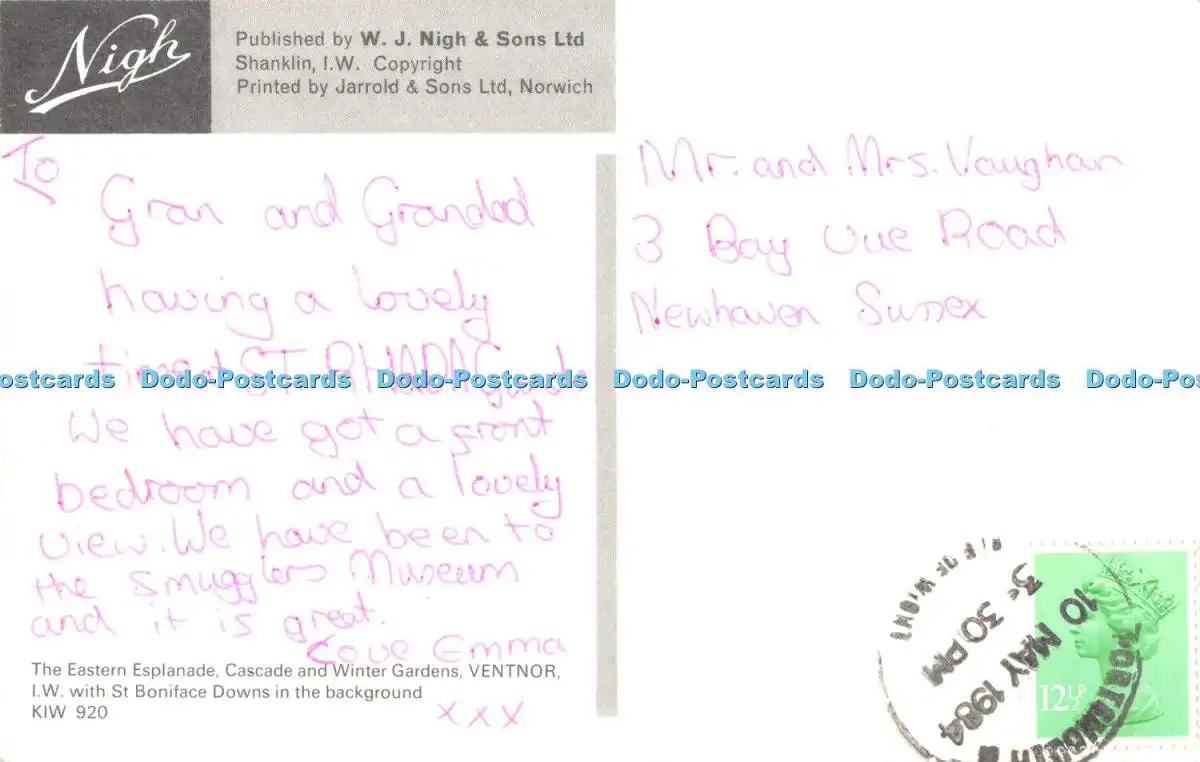 Nigh
Published by W. J. Nigh & Sons Ltd
Shanklin, I.W. Copyright
Printed by Jarrold & Sons Ltd, Norwich
To
Gran and Grandad
having a lovely
time at ST.
We have got a front
bedroom and a lovely
view. We have been to
the smugglers Museum
and it is great.
Love Emma
xxx
The Eastern Esplanade, Cascade and Winter Gardens, VENTNOR,
I.W. with St Boniface Downs in the background
KIW 920
Mr. and Mrs. Vaughan
3 Bay Vue Road
Newhaven Sussex
ostcards Dodo-Postcards Dodo-Postcards Dodo-Postcards Dodo-Postcards Dodo-Pos
PORTSMOUTH &
ISLE OF WIGHT
3 30 PM
10 MAY 1984
12½P